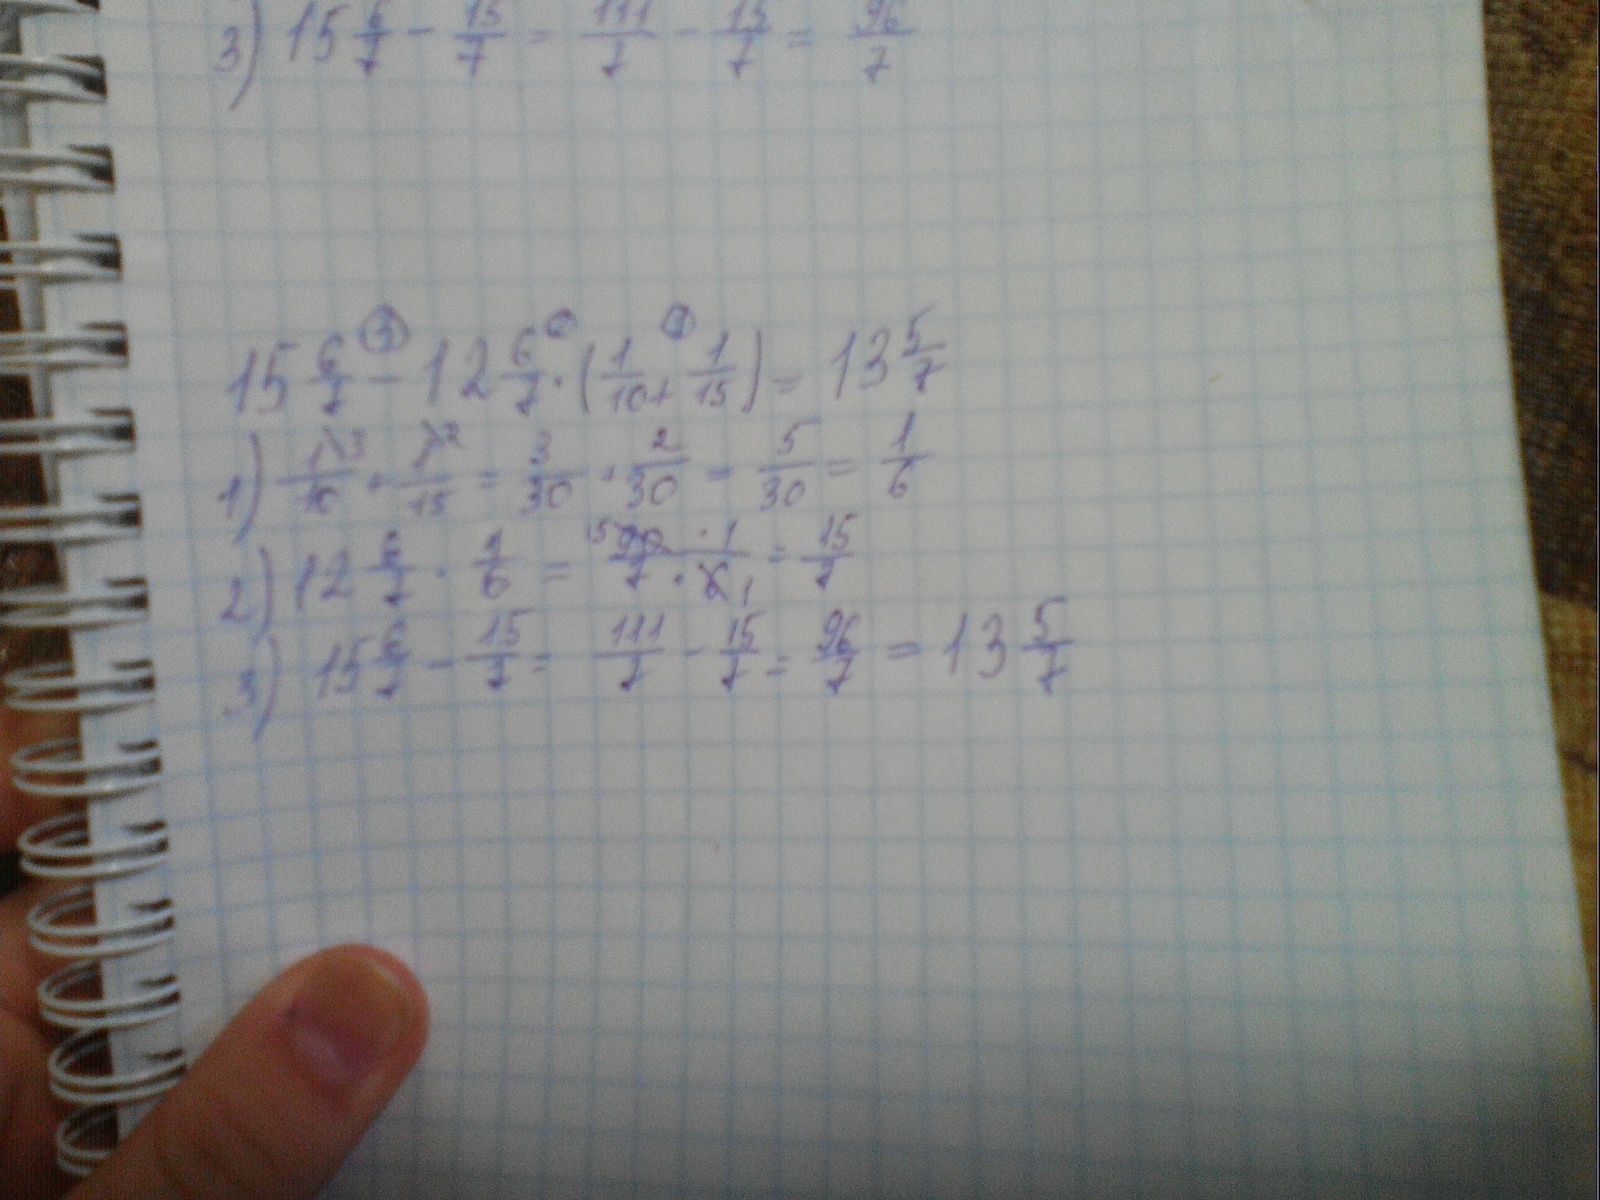 3) 15 6/7 - 15/7 = 111/7 - 15/7 = 96/7
15 6/7 - 12 6/7 · (1/10 + 1/15) = 13 5/7
1) 1/10 + 1/15 = 3/30 + 2/30 = 5/30 = 1/6
2) 12 6/7 · 1/6 = 90 · 1 / 7 · 6 = 15/7
3) 15 6/7 - 15/7 = 111/7 - 15/7 = 96/7 = 13 5/7